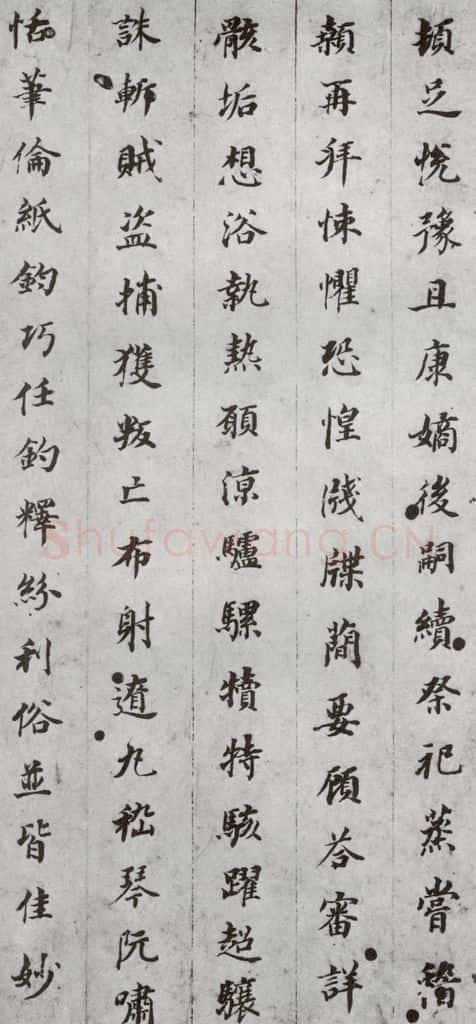 頓足悅豫且康嫡後嗣續祭祀蒸嘗稽
顙再拜悚懼恐惶牋牒蕑要顧荅審詳
骸垢想浴執熱願涼驢騾犢特駭躍超驤
誅斬賊盜捕獲叛亡布射遼丸嵇琴阮嘯
恬筆倫紙鈞巧任釣釋紛利俗並皆佳妙
Shufawang.CN